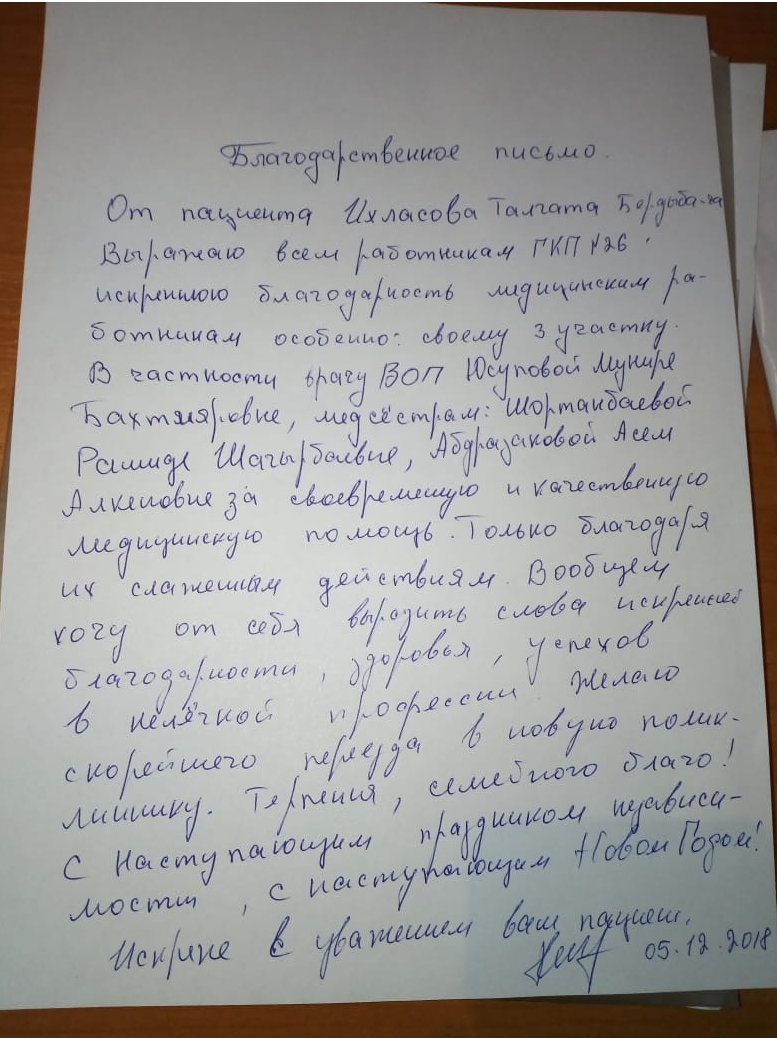 Благодарственное письмо.
От пациента Ихласова Талгата
Выражаю всем работникам ГКП №26.
искреннюю благодарность медицинским ра-
ботникам особенно: своему 3 участку.
В частности врачу ВОП Юсуповой Мунире
Бахтияровне, медсёстрам: Шортанбаевой
Рашиде Шагырбаевне, Абдразаковой Асем
Алкеновне за своевременную и качественную
медицинскую помощь. Только благодаря
их слаженным действиям. Вообщем
хочу от себя выразить слова искренней
благодарности, здоровья, успехов
в нелёгкой профессии. Желаю
скорейшего переезда в новую полик-
линику. Терпения, семейного благо!
С наступающим праздником независи-
мости, с наступающим Новом Годом!
Искрене с уважением ваш пациент.
05.12.2018